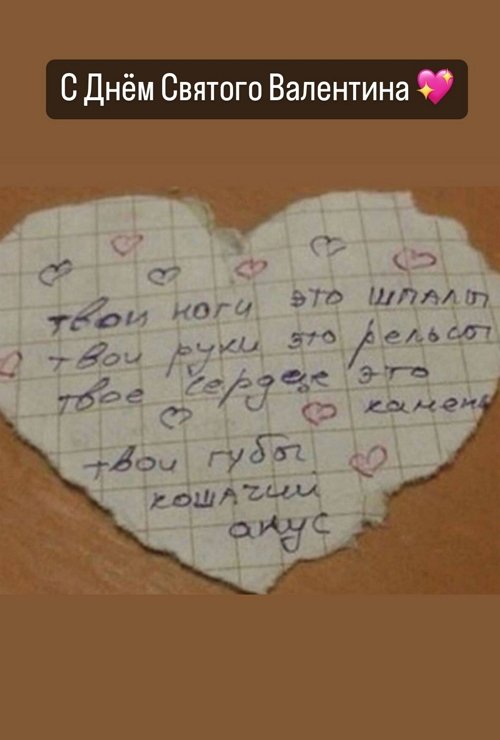 С Днём Святого Валентина 💖
твои ноги это шпалы
твои руки это рельсы
твое сердеце это
камень
твои губы
кошачии
анус